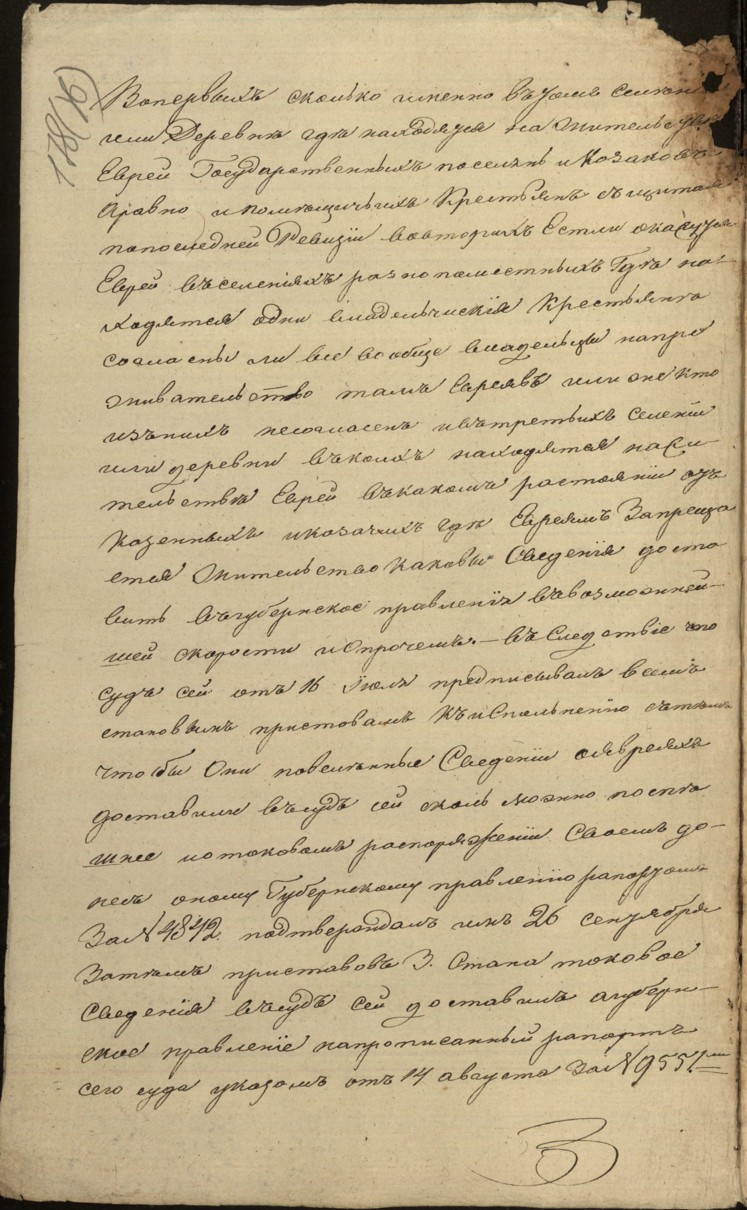 178(16)
Вопервыхъ сколько именно въ томъ селении
или Деревне где находятся на жительстве
Еврей Государственныхъ поселянъ и Козаковъ
аравно и помещичьихъ Крестьянъ съ щитая
попоследней Ревизіи вовторыхъ Естли окажутся
Еврей въ селеніяхъ разнопоместныхъ Где на-
ходятся одни владельческія Крестьяне то
согласны ли все вообще владельцы напро
живательство тамъ Евреявъ или же кто
изъ нихъ несогласенъ ивътретьихъ селении
или деревни въ коихъ находятся нажи-
тельстве Еврей въ какомъ растоянии отъ
казенныхъ и козачихъ где Евреямъ Запреща
ется Жительство каковы Сведенія доста
вить въ губернское правленія въ возможней-
шей скорости и опрочемъ. — въ Следствіе чего
судъ сей отъ 16 Іюля предписывалъ всемъ
становымъ приставамъ къ исполненію съ темъ
что бы Они повеленные Сведении о Евреяхъ
доставили въ судъ сей сколь можно поспе
шнее и отаковомъ распоряжении Своемъ до-
несъ оному Губернскому правленію рапортомъ
За N 4842. подтверждалъ имъ 26 сентября
Затемъ приставовъ 3. Стана таковое
Сведенія въ судъ сей доставилъ агуберн-
ское правленіе напрописанный рапортъ
сего суда указомъ отъ 14 августа За N 9551мъ